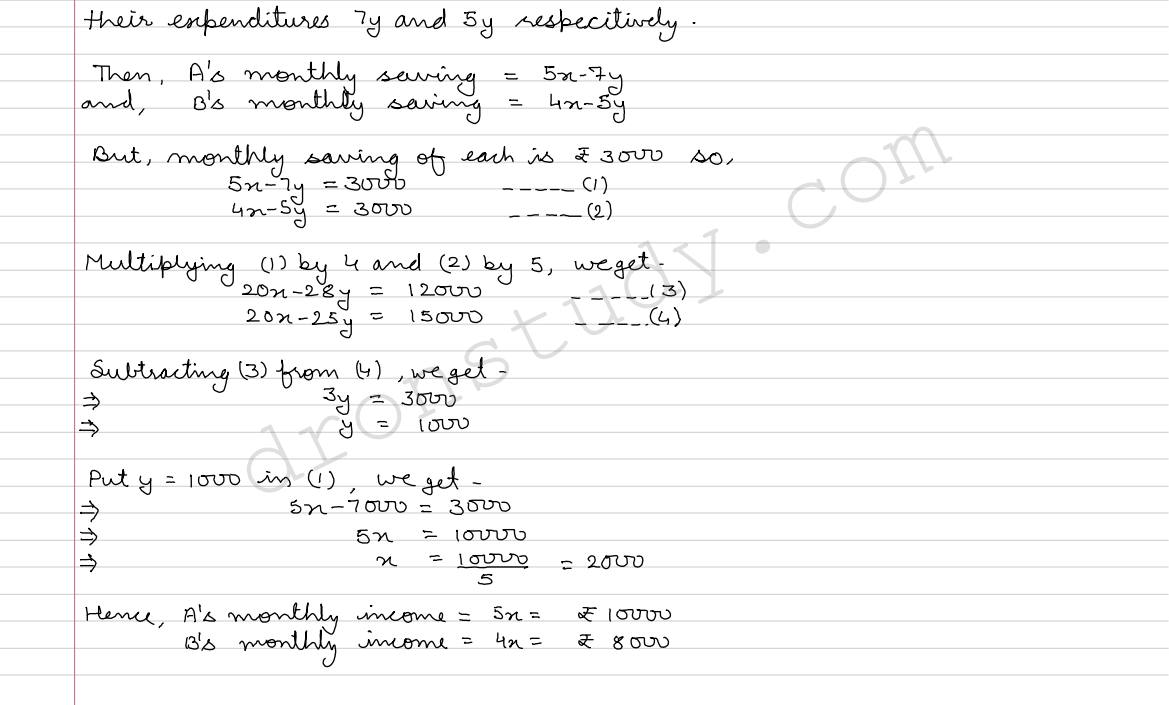 their expenditures 7y and 5y respecitively.
Then, A's monthly saving = 5x-7y
and, B's monthly saving = 4x-5y
But, monthly saving of each is ₹ 3000 so,
5x-7y = 3000 -----(1)
4x-5y = 3000 -----(2)
Multiplying (1) by 4 and (2) by 5, we get-
20x-28y = 12000 -----(3)
20x-25y = 15000 -----(4)
Subtracting (3) from (4), we get-
⇒ 3y = 3000
⇒ y = 1000
Put y = 1000 in (1), we get-
⇒ 5x-7000 = 3000
⇒ 5x = 10000
⇒ x = 10000/5 = 2000
Hence, A's monthly income = 5x = ₹ 10000
B's monthly income = 4x = ₹ 8000
dronstudy.com